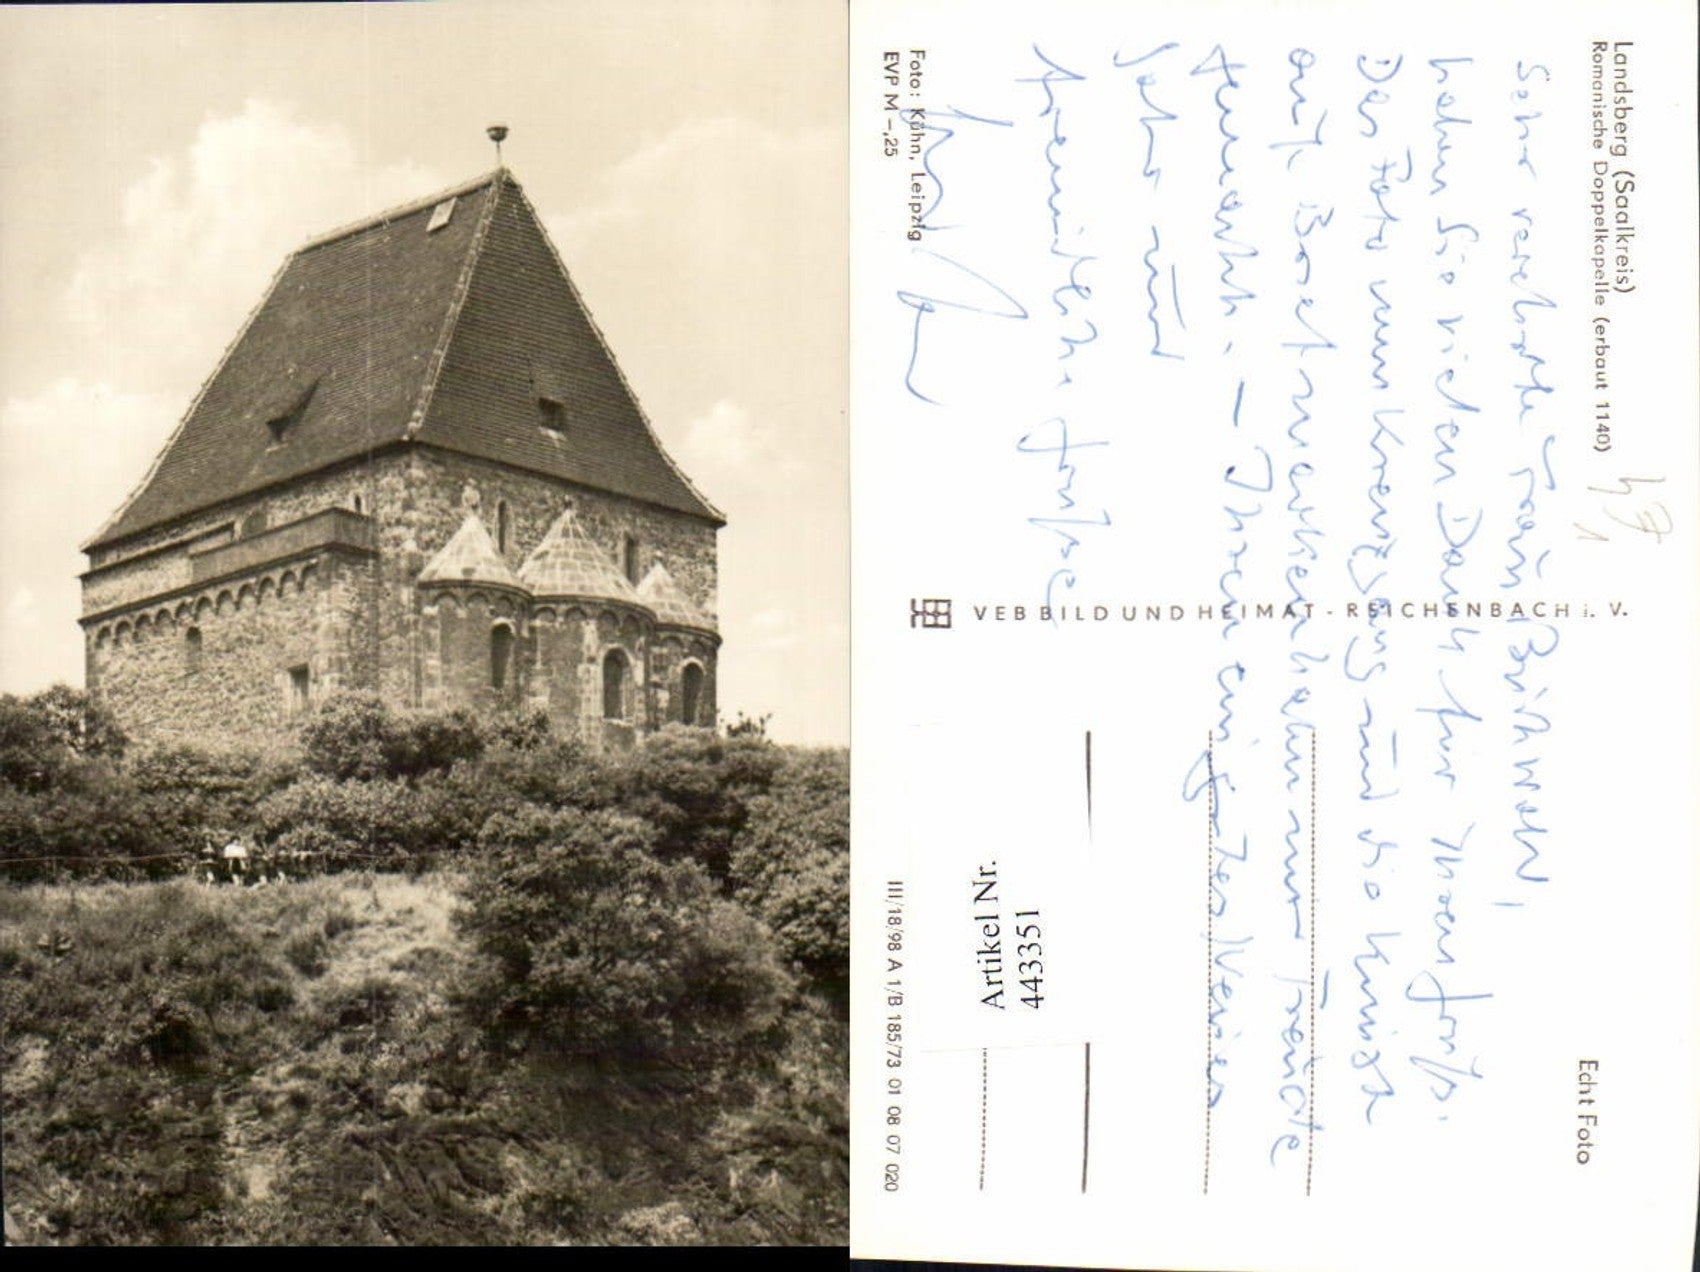 Landsberg (Saalkreis)
Romanische Doppelkapelle (erbaut 1140)
Echt Foto
Sehr verehrte Frau
haben Sie vielen Dank für Ihren Gruß.
Das Foto vom Kreuzgang und die Kunst
auf haben mir Freude
gemacht. – Ihnen ein gutes Neues
Jahr und
freundliche Grüße
VEB BILD UND HEIMAT - REICHENBACH i. V.
Foto: Kühn, Leipzig
EVP M –,25
III/18/98 A 1/B 185/73 01 08 07 020
Artikel Nr.
443351